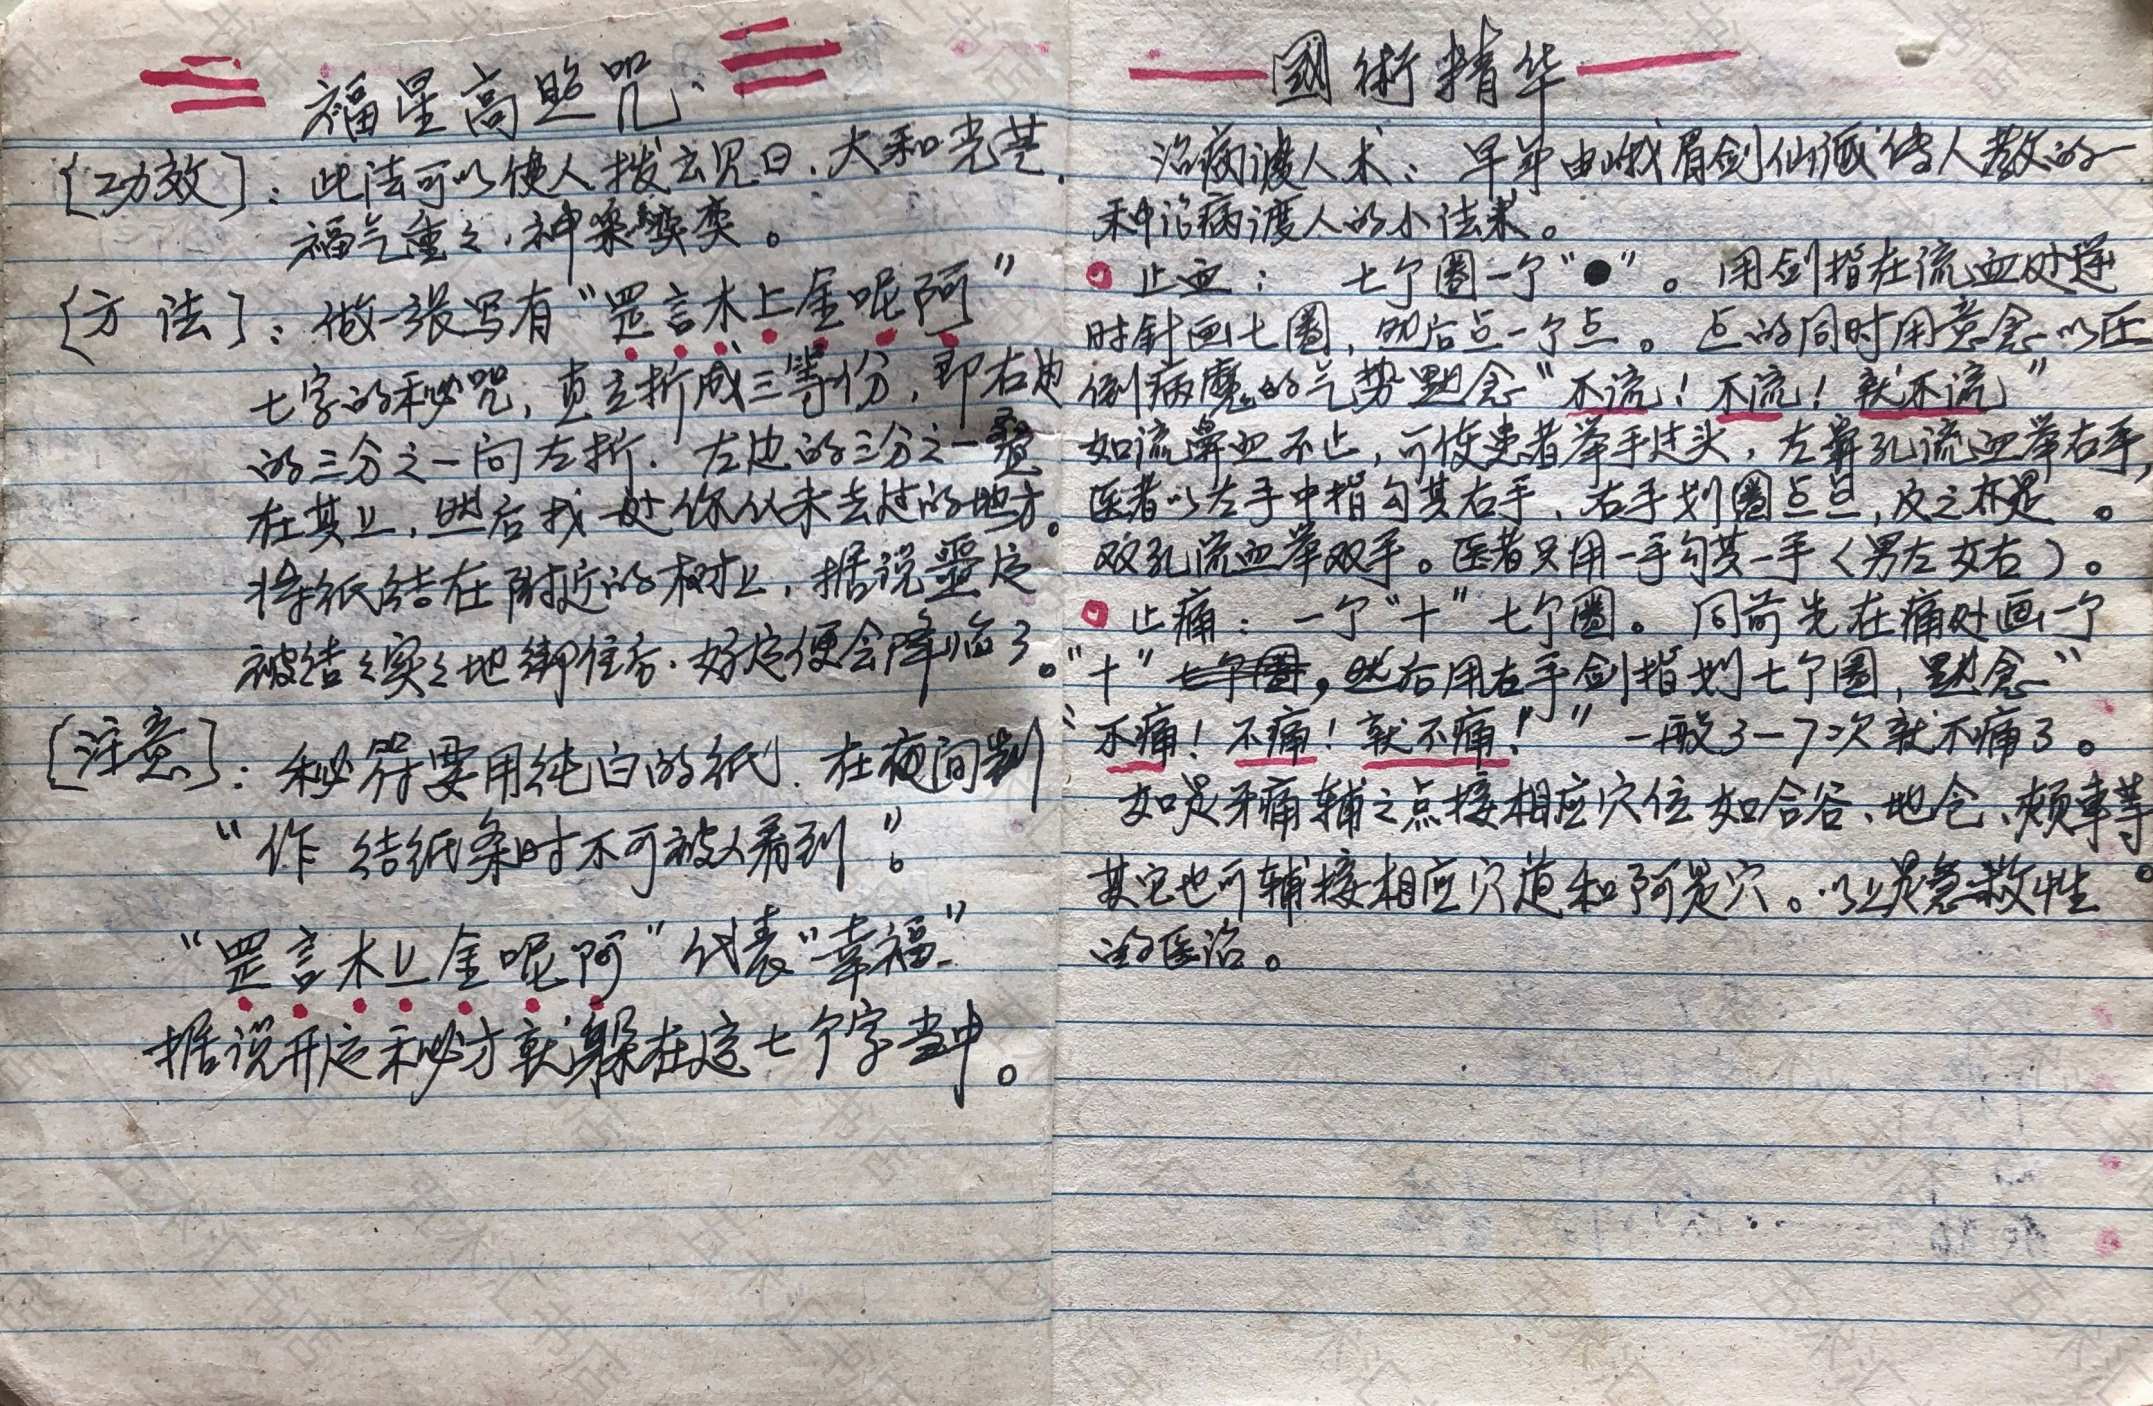 福星高照咒
〔功效〕：此法可以使人拨云见日，大和光芒，
福气重重，神采奕奕。
〔方法〕：做一张写有“罡言木上金呢阿”
七字的秘咒，直立折成三等份，即右边
的三分之一向左折．左边的三分之一叠
在其上，然后找一处你从未去过的地方。
将纸结在附近的树上，据说噩运
被结结实实地绑住后．好运便会降临了。
〔注意〕：秘符要用纯白的纸，在夜间制
“作 结纸条时不可被人看到”。
“罡言木上金呢阿”代表“幸福”
据说开运秘方就躲在这七个字当中。
國術精华
治病渡人术：早年由峨眉剑仙派传人教的一
种治病渡人的小法术。
止血： 七个圈一个“●”。用剑指在流血处逆
时针画七圈，然后点一个点。点的同时用意念以压
倒病魔的气势默念“不流！不流！就不流”
如流鼻血不止，可使患者举手过头，左鼻孔流血举右手，
医者以左手中指勾其右手，右手划圈点点，反之亦是。
双孔流血举双手。医者只用一手勾其一手（男左女右）。
止痛：一个“十”七个圈。同前先在痛处画一个
“十”七个圈，然后用右手剑指划七个圈，默念“
“不痛！不痛！就不痛！”一般3－7次就不痛了。
如是牙痛辅之点按相应穴位如合谷、地仓、颊车等。
其它也可辅按相应穴道和阿是穴。以上是急救性
的医治。
五术汇书店